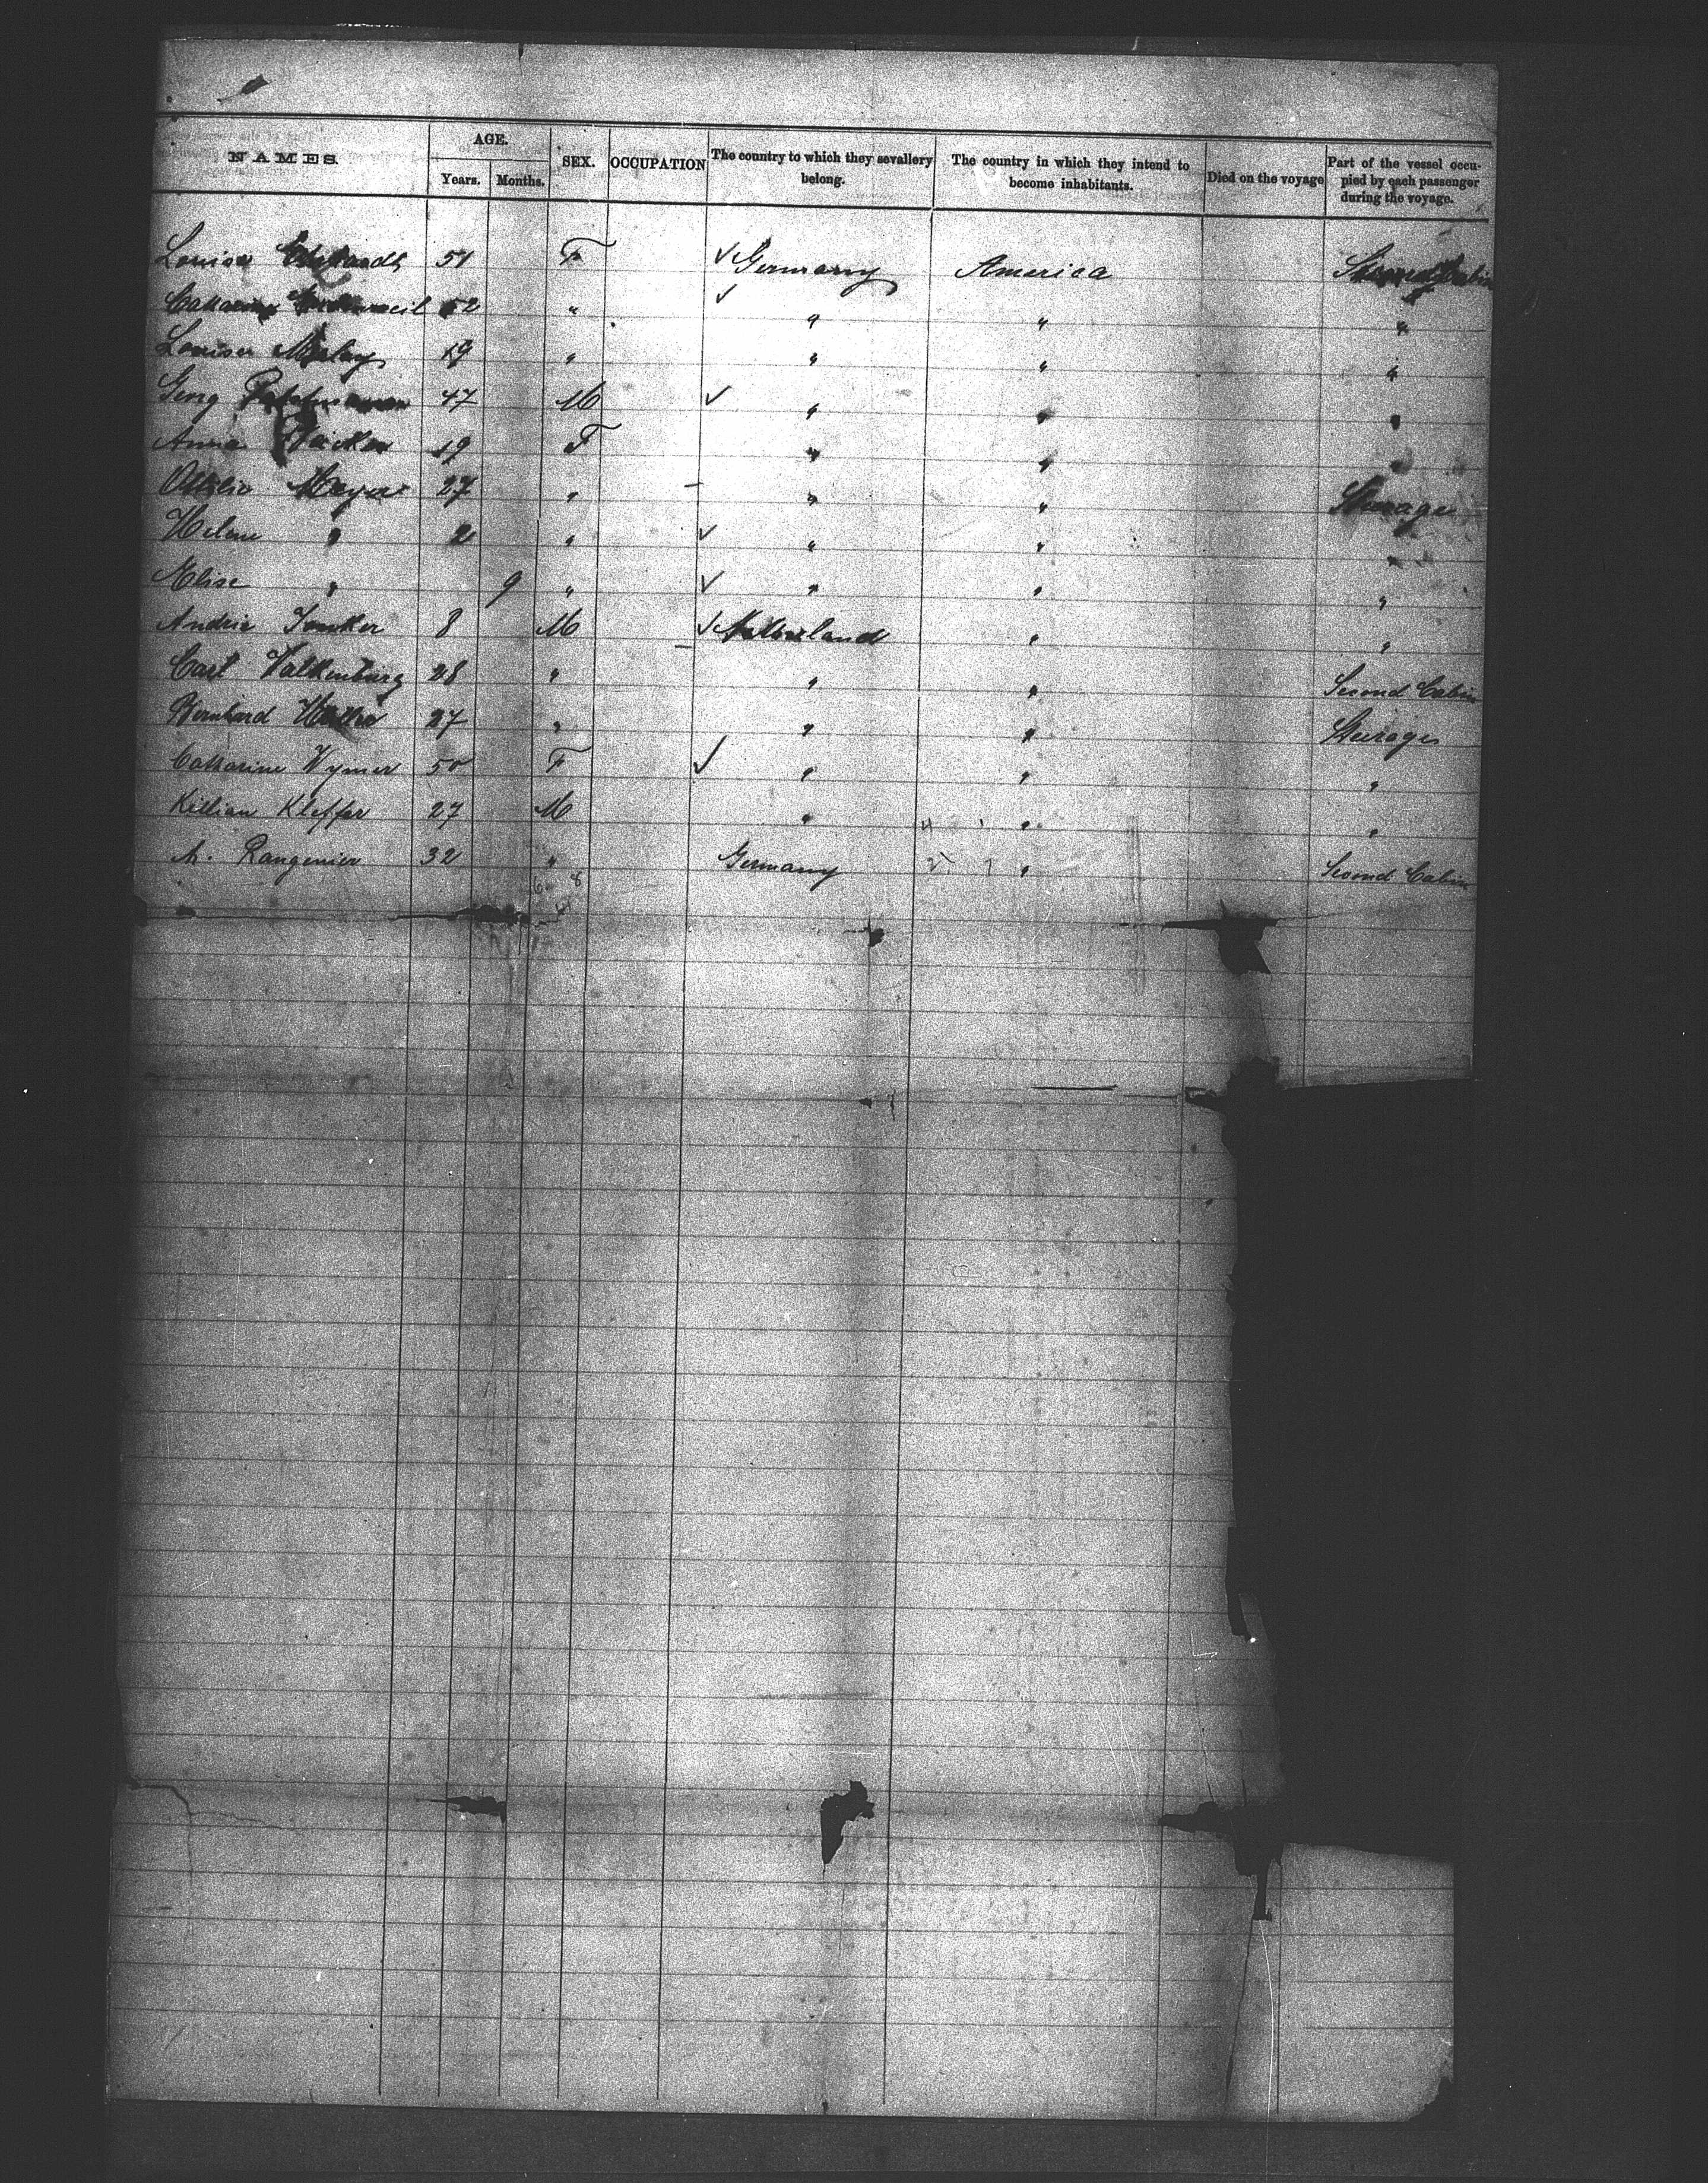 NAMES. AGE. Years. Months. SEX. OCCUPATION The country to which they sevallery belong. The country in which they intend to become inhabitants. Died on the voyage Part of the vessel occupied by each passenger during the voyage.
Louise 51 F Germany America Second Cabin
52 " " " "
Louise 19 " " " "
Georg 47 M " " "
Anna 19 F " " "
Meyer 27 " " " Steerage
Helene " 2 " " " "
Elise " 9 " " " "
Andrie Jonker 8 M " "
Carl Valkenburg 28 " " " Second Cabin
Bernhard 27 " " " Steerage
Catharine Wymer 50 F " " "
Killian Kleffer 27 M " " "
A. Rangenier 32 " Germany " Second Cabin